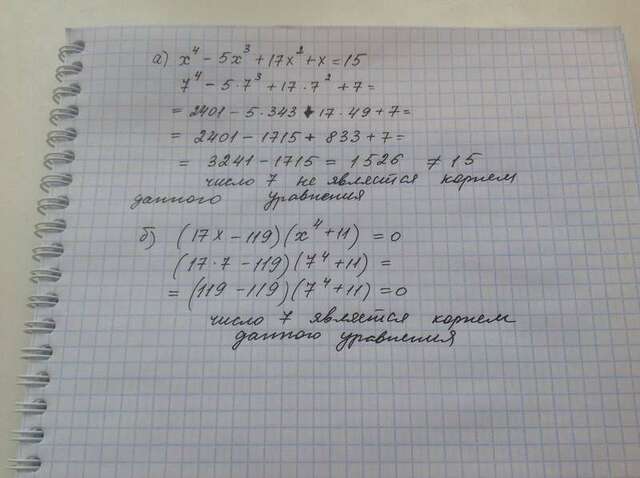 а) x⁴ - 5x³ + 17x² + x = 15
7⁴ - 5·7³ + 17·7² + 7 =
= 2401 - 5·343 + 17·49 + 7 =
= 2401 - 1715 + 833 + 7 =
= 3241 - 1715 = 1526 ≠ 15
число 7 не является корнем
данного уравнения
б) (17x - 119)(x⁴ + 11) = 0
(17·7 - 119)(7⁴ + 11) =
= (119 - 119)(7⁴ + 11) = 0
число 7 является корнем
данного уравнения